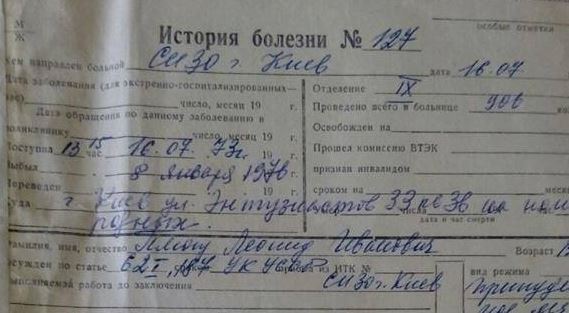 М
Ж
особые отметки
История болезни № 127
кем направлен больной СИЗО г. Киев дата 16.07
Дата заболевания (для экстренно-госпитализированных— Отделение IX
число, месяц 19 г. Проведено всего в больнице 906
Дата обращения по данному заболеванию в
поликлинику число, месяц 19 г. Освобожден на
Поступил 13 15 час 16.07.73г. 19 г. Прошел комиссию ВТЭК
Выбыл 8 января 1976 г. признан инвалидом
Переведен 19 г. сроком на месяц
Куда г. Киев ул. Энтузиастов 33 кв 36
родных. число, месяц дата и час смерти
Фамилия, имя, отчество Плющ Леонид Иванович Возраст
осужден по статье 62 I, 187 УК УССР из ИТК № вид режима
выполняемой работа до заключения СИЗО г. Киев